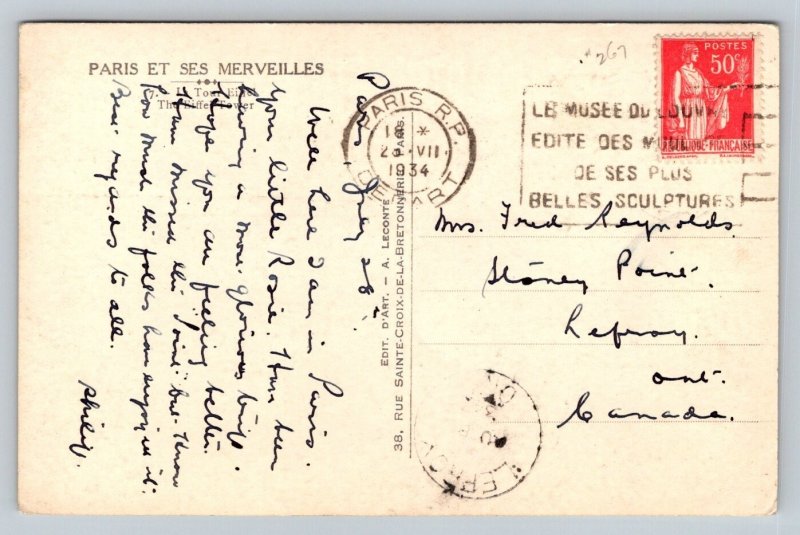 PARIS ET SES MERVEILLES
7. La Tour Eiffel
The Eiffel Tower
Paris, July 28th
Well here I am in Paris.
your little Rosie. Have been
having a most glorious trip.
Hope you are feeling better.
Have missed the "Point" but know
how much the folks have enjoyed it.
Best regards to all.
Philip.
EDIT. D'ART. — A. LECONTE
38, RUE SAINTE-CROIX-DE-LA-BRETONNERIE, PARIS.
267
PARIS R.P.
VII
1934
DEPART
LE MUSEE DU LOUVRE
EDITE DES
DE SES PLUS
BELLES SCULPTURES
POSTES
50c
REPUBLIQUE-FRANCAISE
Mrs. Fred Reynolds.
Stoney Point.
Lefroy.
Ont.
Canada.
LEFROY
ONT